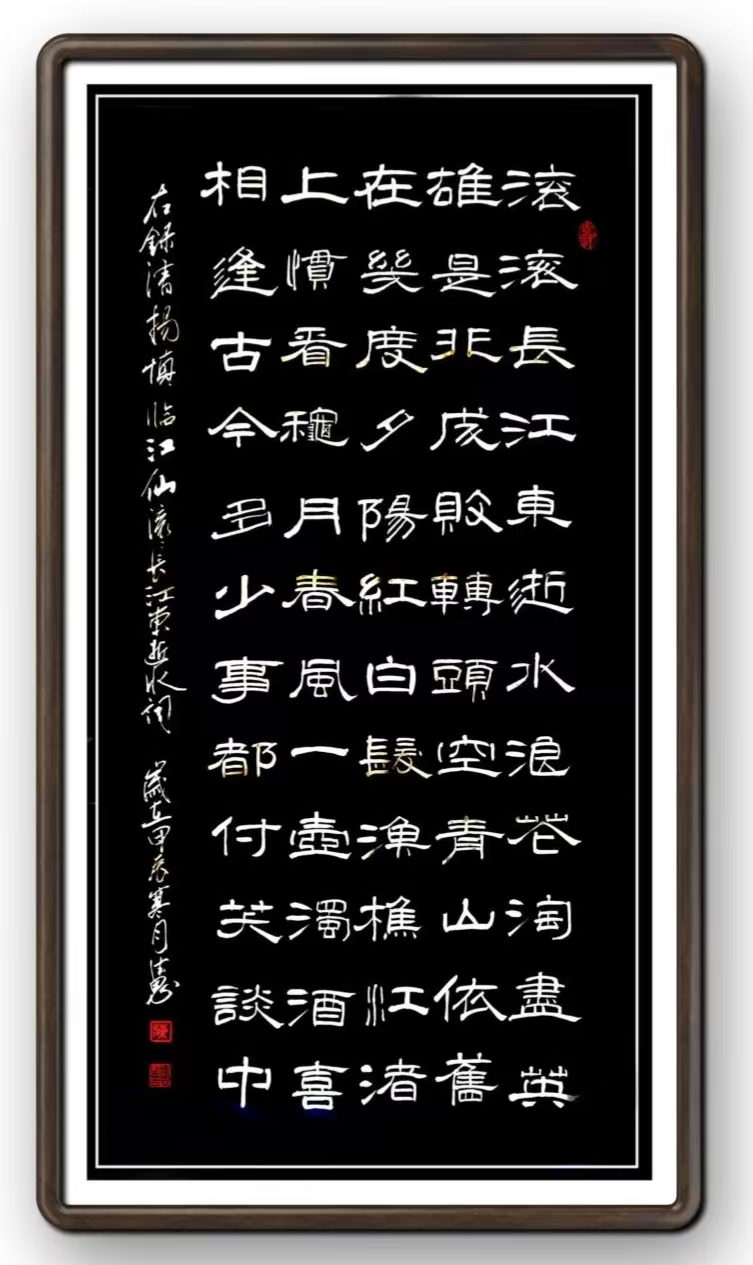 滚滚長江東逝水浪花淘盡英
雄是非成敗轉頭空青山依舊
在幾度夕陽紅白髮漁樵江渚
上慣看龝月春風一壺濁酒喜
相逢古今多少事都付笑談中
右録清揚慎临江仙滚〻長江東逝水詞 歲在甲辰寒月